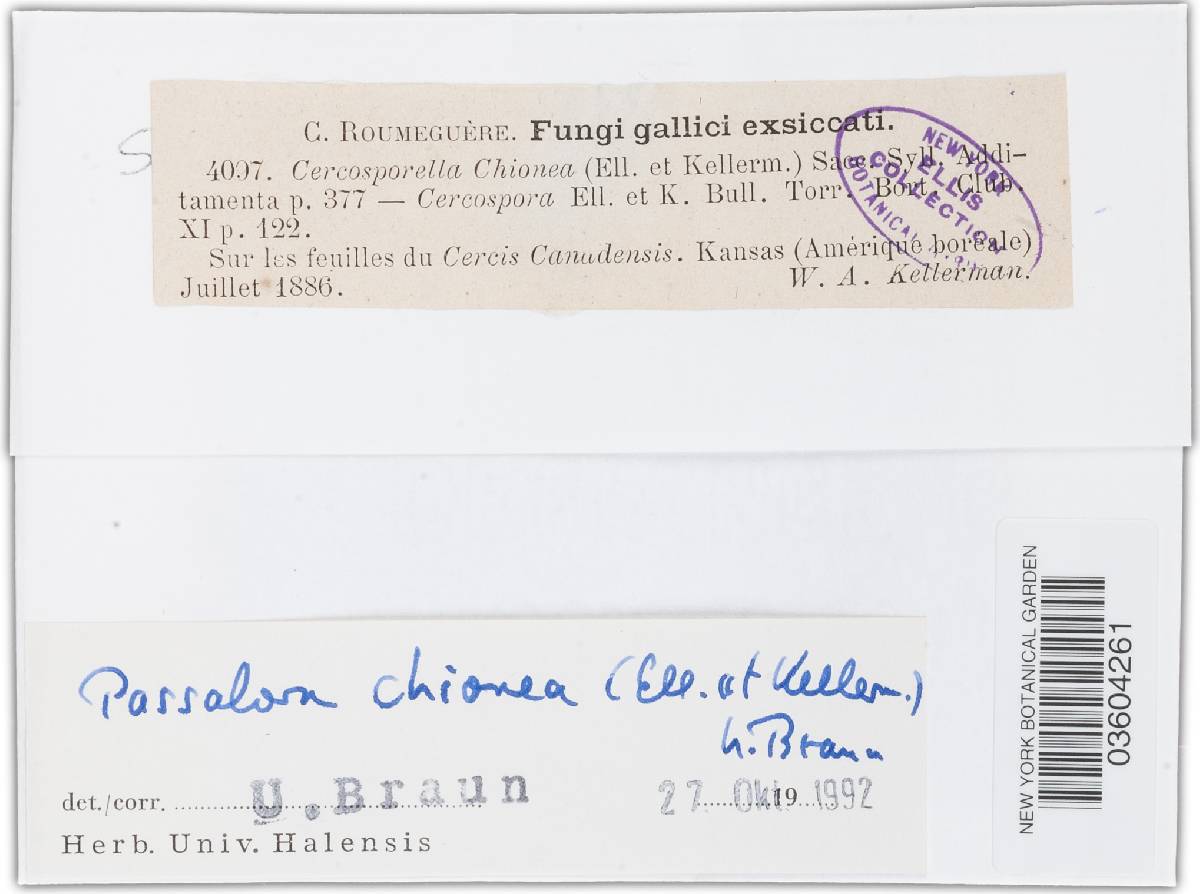 S
C. ROUMEGUÈRE. Fungi gallici exsiccati.
4097. Cercosporella Chionea (Ell. et Kellerm.) Sacc. Syll. Addi-
tamenta p. 377 — Cercospora Ell. et K. Bull. Torr. Bort. Club.
XI p. 122.
Sur les feuilles du Cercis Canadensis. Kansas (Amérique boréale)
Juillet 1886. W. A. Kellerman.
NEW YORK
ELLIS
COLLECTION
BOTANICAL
Passalora chionea (Ell. et Kellerm.)
U. Braun
det./corr. U. Braun 27. Okt. 19 1992
Herb. Univ. Halensis
NEW YORK BOTANICAL GARDEN
03604261